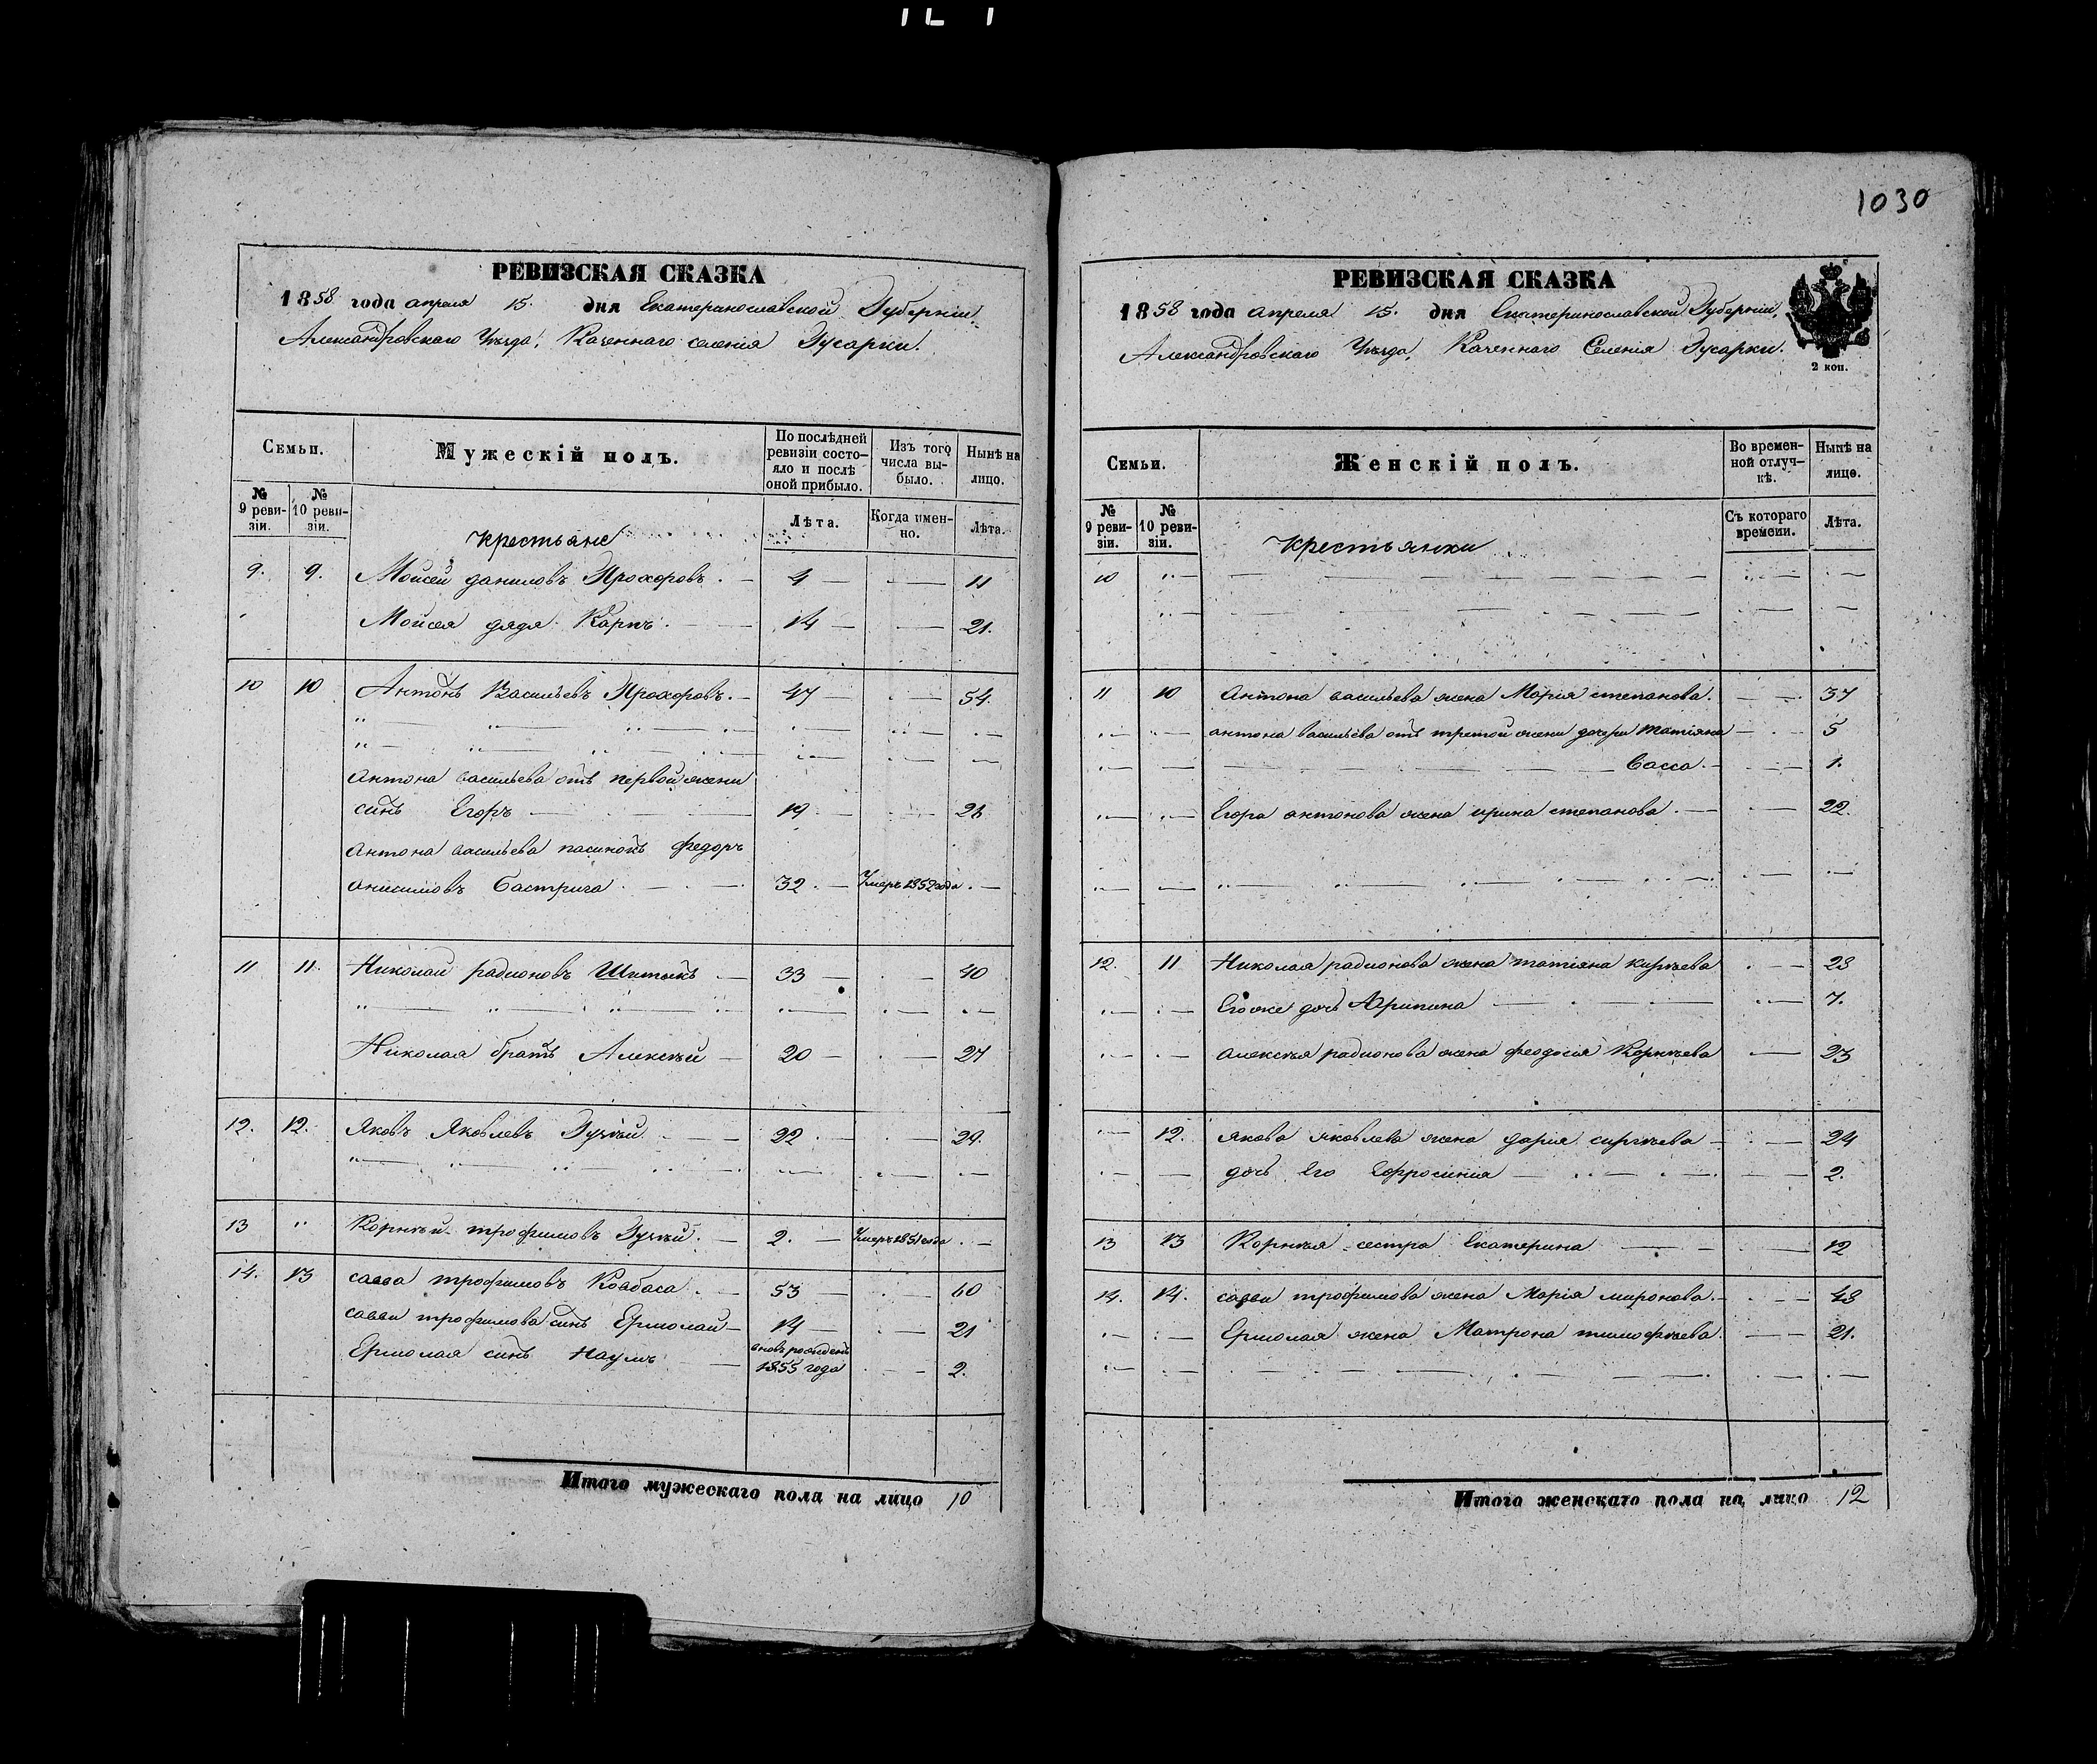 1030
РЕВИЗСКАЯ СКАЗКА
1858 года апреля 15. дня Екатеринославской Губерніи
Александровскаго Уѣзда, Казеннаго селенія Гусарки.
Семьи.
Мужескій полъ.
По послѣдней ревизіи состояло и послѣ оной прибыло.
Изъ того числа выбыло.
Нынѣ на лицо.
№ 9 ревизіи.
№ 10 ревизіи.
Лѣта.
Когда именно.
Лѣта.
Крестьяне
9. 9. Мойсей даниловъ Прохоровъ. — 4 — 11
Мойсея дядя Карпъ. — 14 — 21.
10 10 Антонъ Васильевъ Прохоровъ. — 47 — 54.
Антона васильева отъ первой жени
синъ Егоръ — 19 — 26
Антона васильева пасинокъ федоръ
анисимовъ — 32. — Умеръ 1852 года. —
11 11. Николай радионовъ — 33 — 40
Николая братъ Алексѣй — 20 — 27
12. 12. Яковъ Яковлевъ — 22 — 29.
13 " Корнѣй трофимовъ — 2. — Умеръ 1851 года. —
14. 13 савва трофимовъ Ковбаса. — 53 — 60
савви трофимова синъ Ермолай — 14 — 21
Ермолая синъ Наумъ — вновь рожденъ
1855 года — 2.
Итого мужескаго пола на лицо 10
РЕВИЗСКАЯ СКАЗКА
1858 года апреля 15. дня Екатеринославской Губерніи,
Александровскаго Уѣзда, Казеннаго Селенія Гусарки.
2 коп.
Семьи.
Женскій полъ.
Во временной отлучкѣ.
Нынѣ на лицо.
№ 9 ревизіи.
№ 10 ревизіи.
Съ котораго времени.
Лѣта.
Крестьянки
10
11 10 Антона васильева жена Марія степанова. — 37
антона васильева отъ третой жени дочери Татіяна — 5
Васса. — 1.
Егора антонова жена ирина степанова. — 22.
12. 11 Николая радионова жена татіяна — 28
Егоже дочь Агрипина — 7.
алексѣя радионова жена феодосія Корнѣева — 23
12. якова яковлева жена дария сиргѣева — 24
дочь Его Ефросиния — 2.
13 13 Корнѣя сестра Екатерина — 12
14. 14. савви трофимова жена Марія миронова. — 48
Ермолая жена Матрона тимофѣева. — 21.
Итого женскаго пола на лицо 12